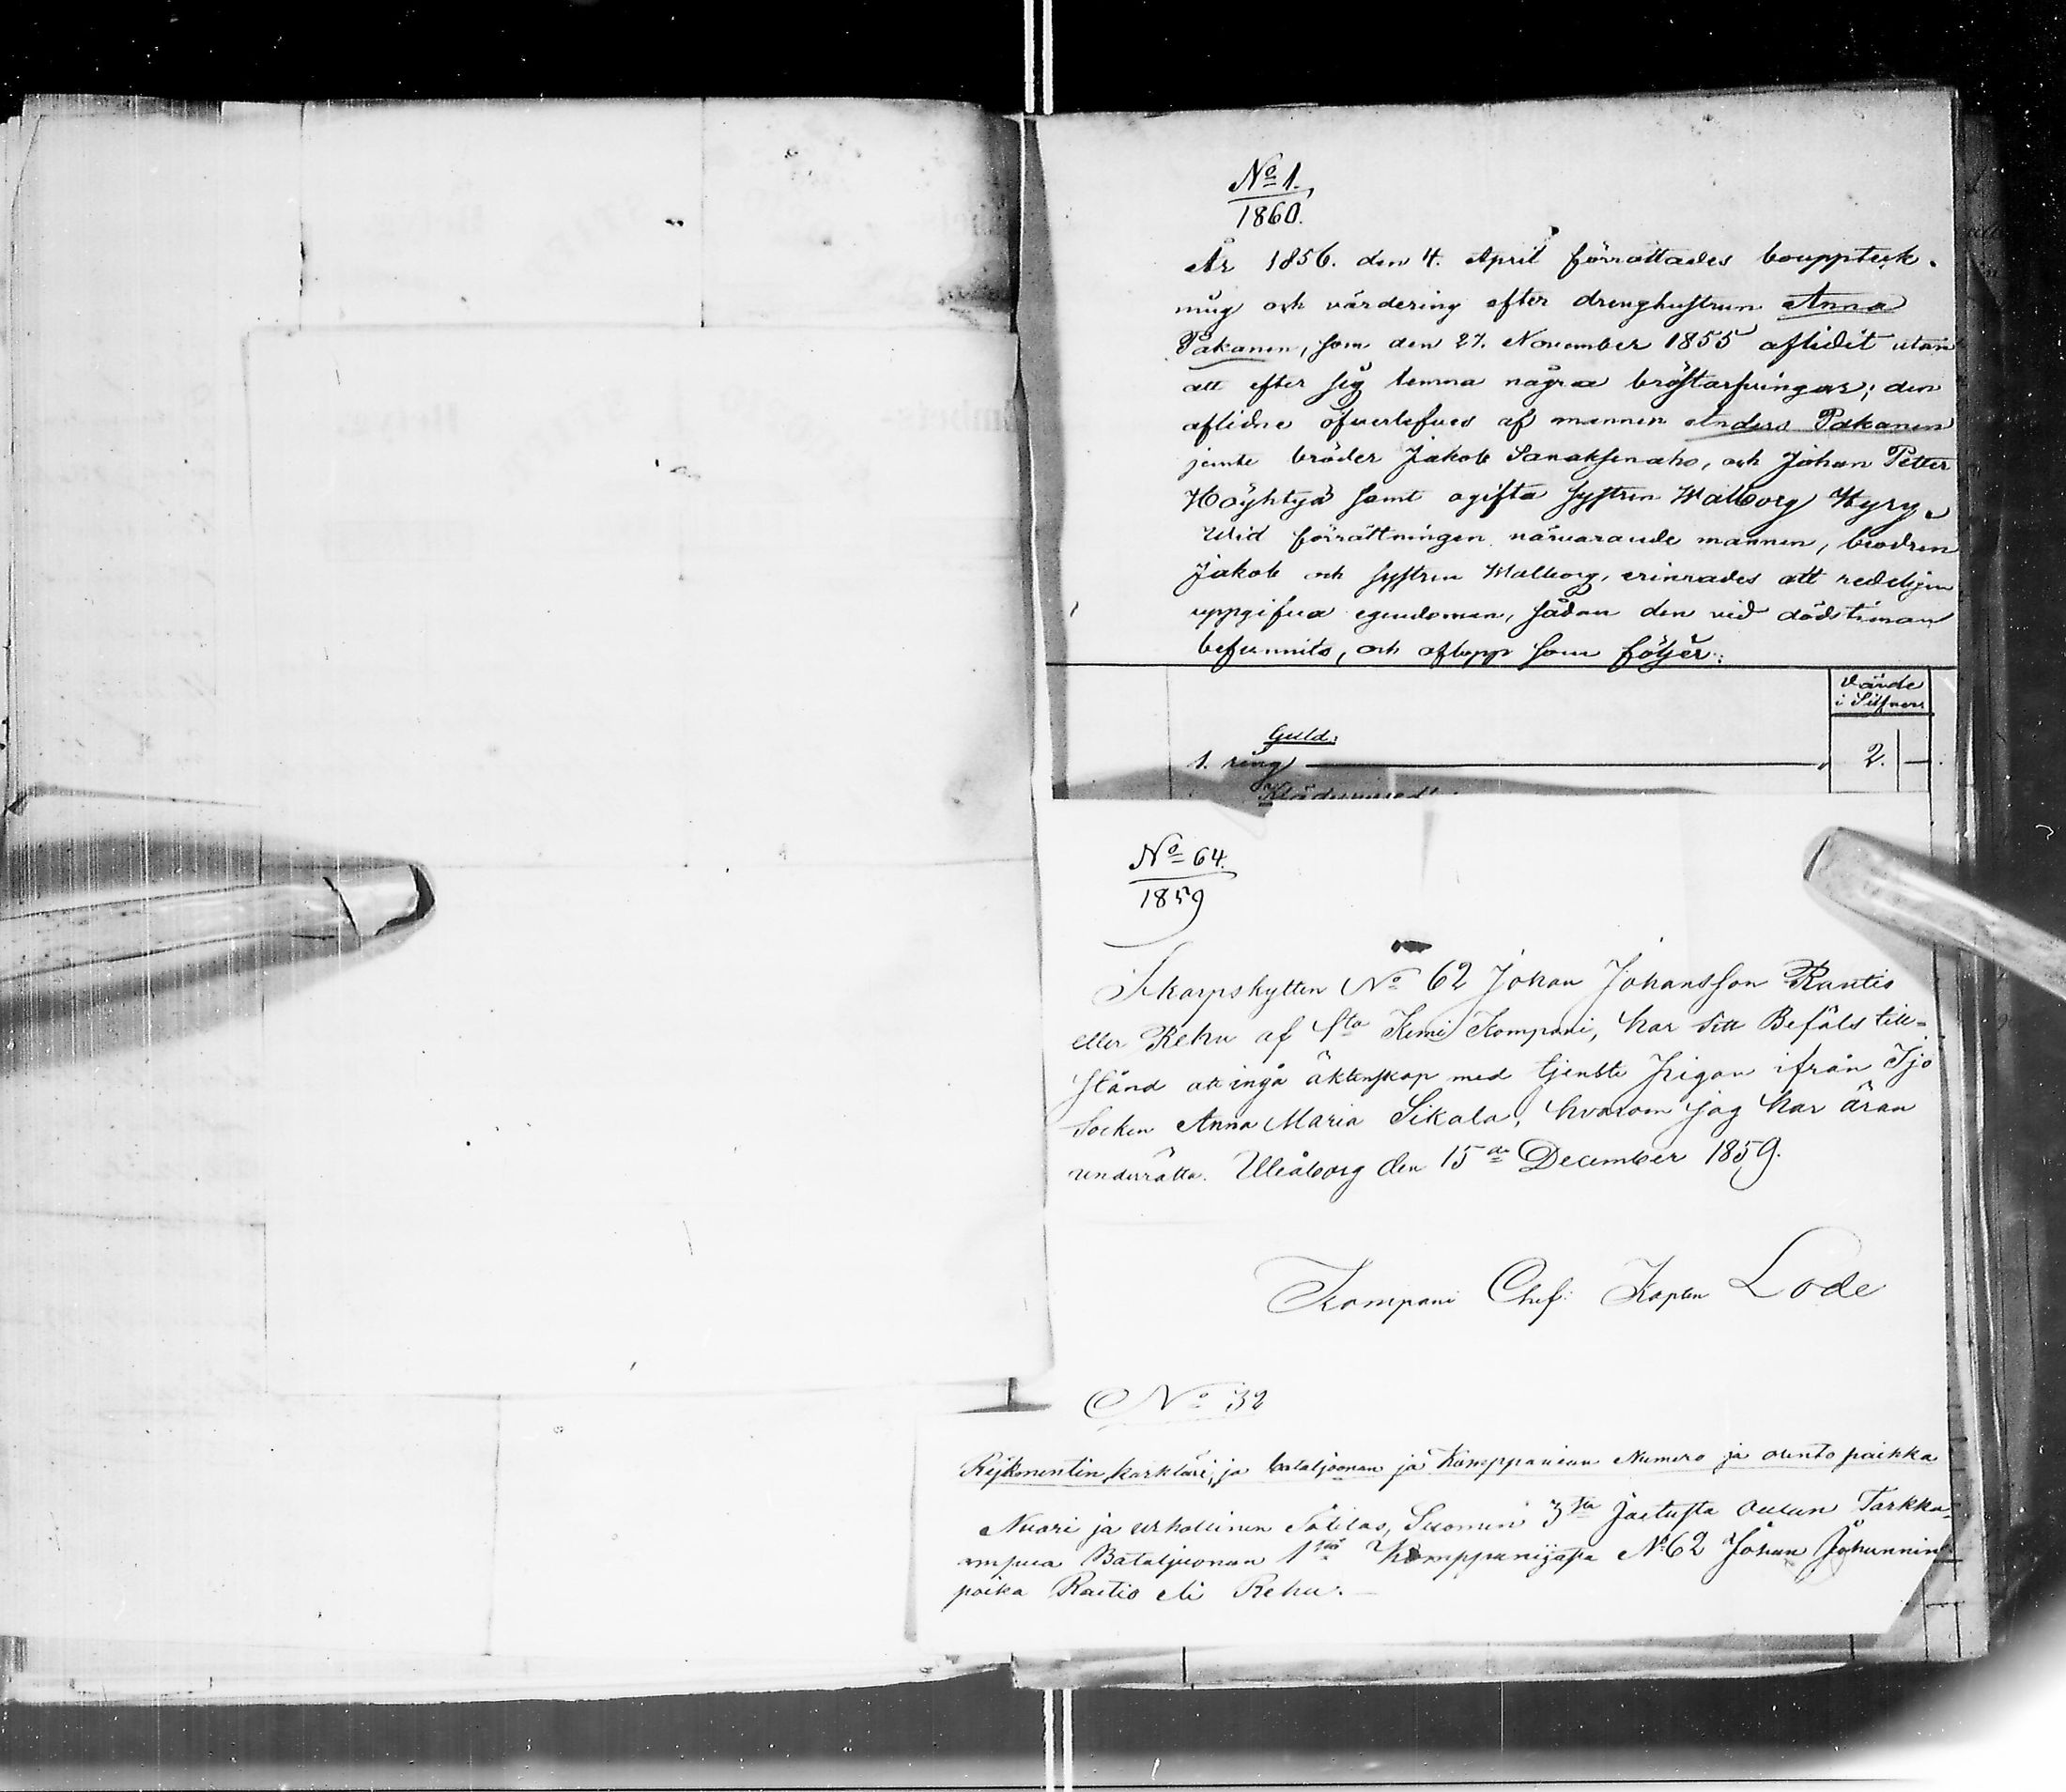 No 1.
1860.
År 1856. den 4. April förrättades bouppteck-
ning och värdering efter drenghustrun Anna
Pakanen, som den 27. November 1855 aflidit utan
att efter sig lemna några bröstarfvingar; den
aflidne öfverlefves af mannen Anders Pakanen
jemte bröder Jakob Sanaksenaho, och Johan Petter
Höyhtyä samt ogifta systren Walborg Kyry.
Wid förrättningen närvarande mannen, brodren
Jakob och systren Walborg, erinrades att redeligen
uppgifva egendomen, sådan den vid dödstiman
befunnits, och aflopp som följer:
Värde
i Silfver
Guld:
1. ring 2. —
No 64.
1859
Skarpskytten No 62 Johan Johansson Rautio
eller Rehu af 1sta Kemi Kompani, har sitt Befäls till-
stånd att ingå äktenskap med tjenste pigan ifrån Ijo
Socken Anna Maria Sikala, hvarom jag har äran
underrätta. Uleåborg den 15de December 1859.
Kompani Chef: Kapten Lode
No 32
Rejkmentin, karktäri, ja bataljoonan ja Komppanian Numero ja olento paikka
Nuori ja urhollinen Solttas, Suomen 3sta Jaetusta Oulun Tarkka-
ampuia Bataljuonan 1sä Komppanijasa No 62 Johan Johannin-
poika Rautio eli Rehu.